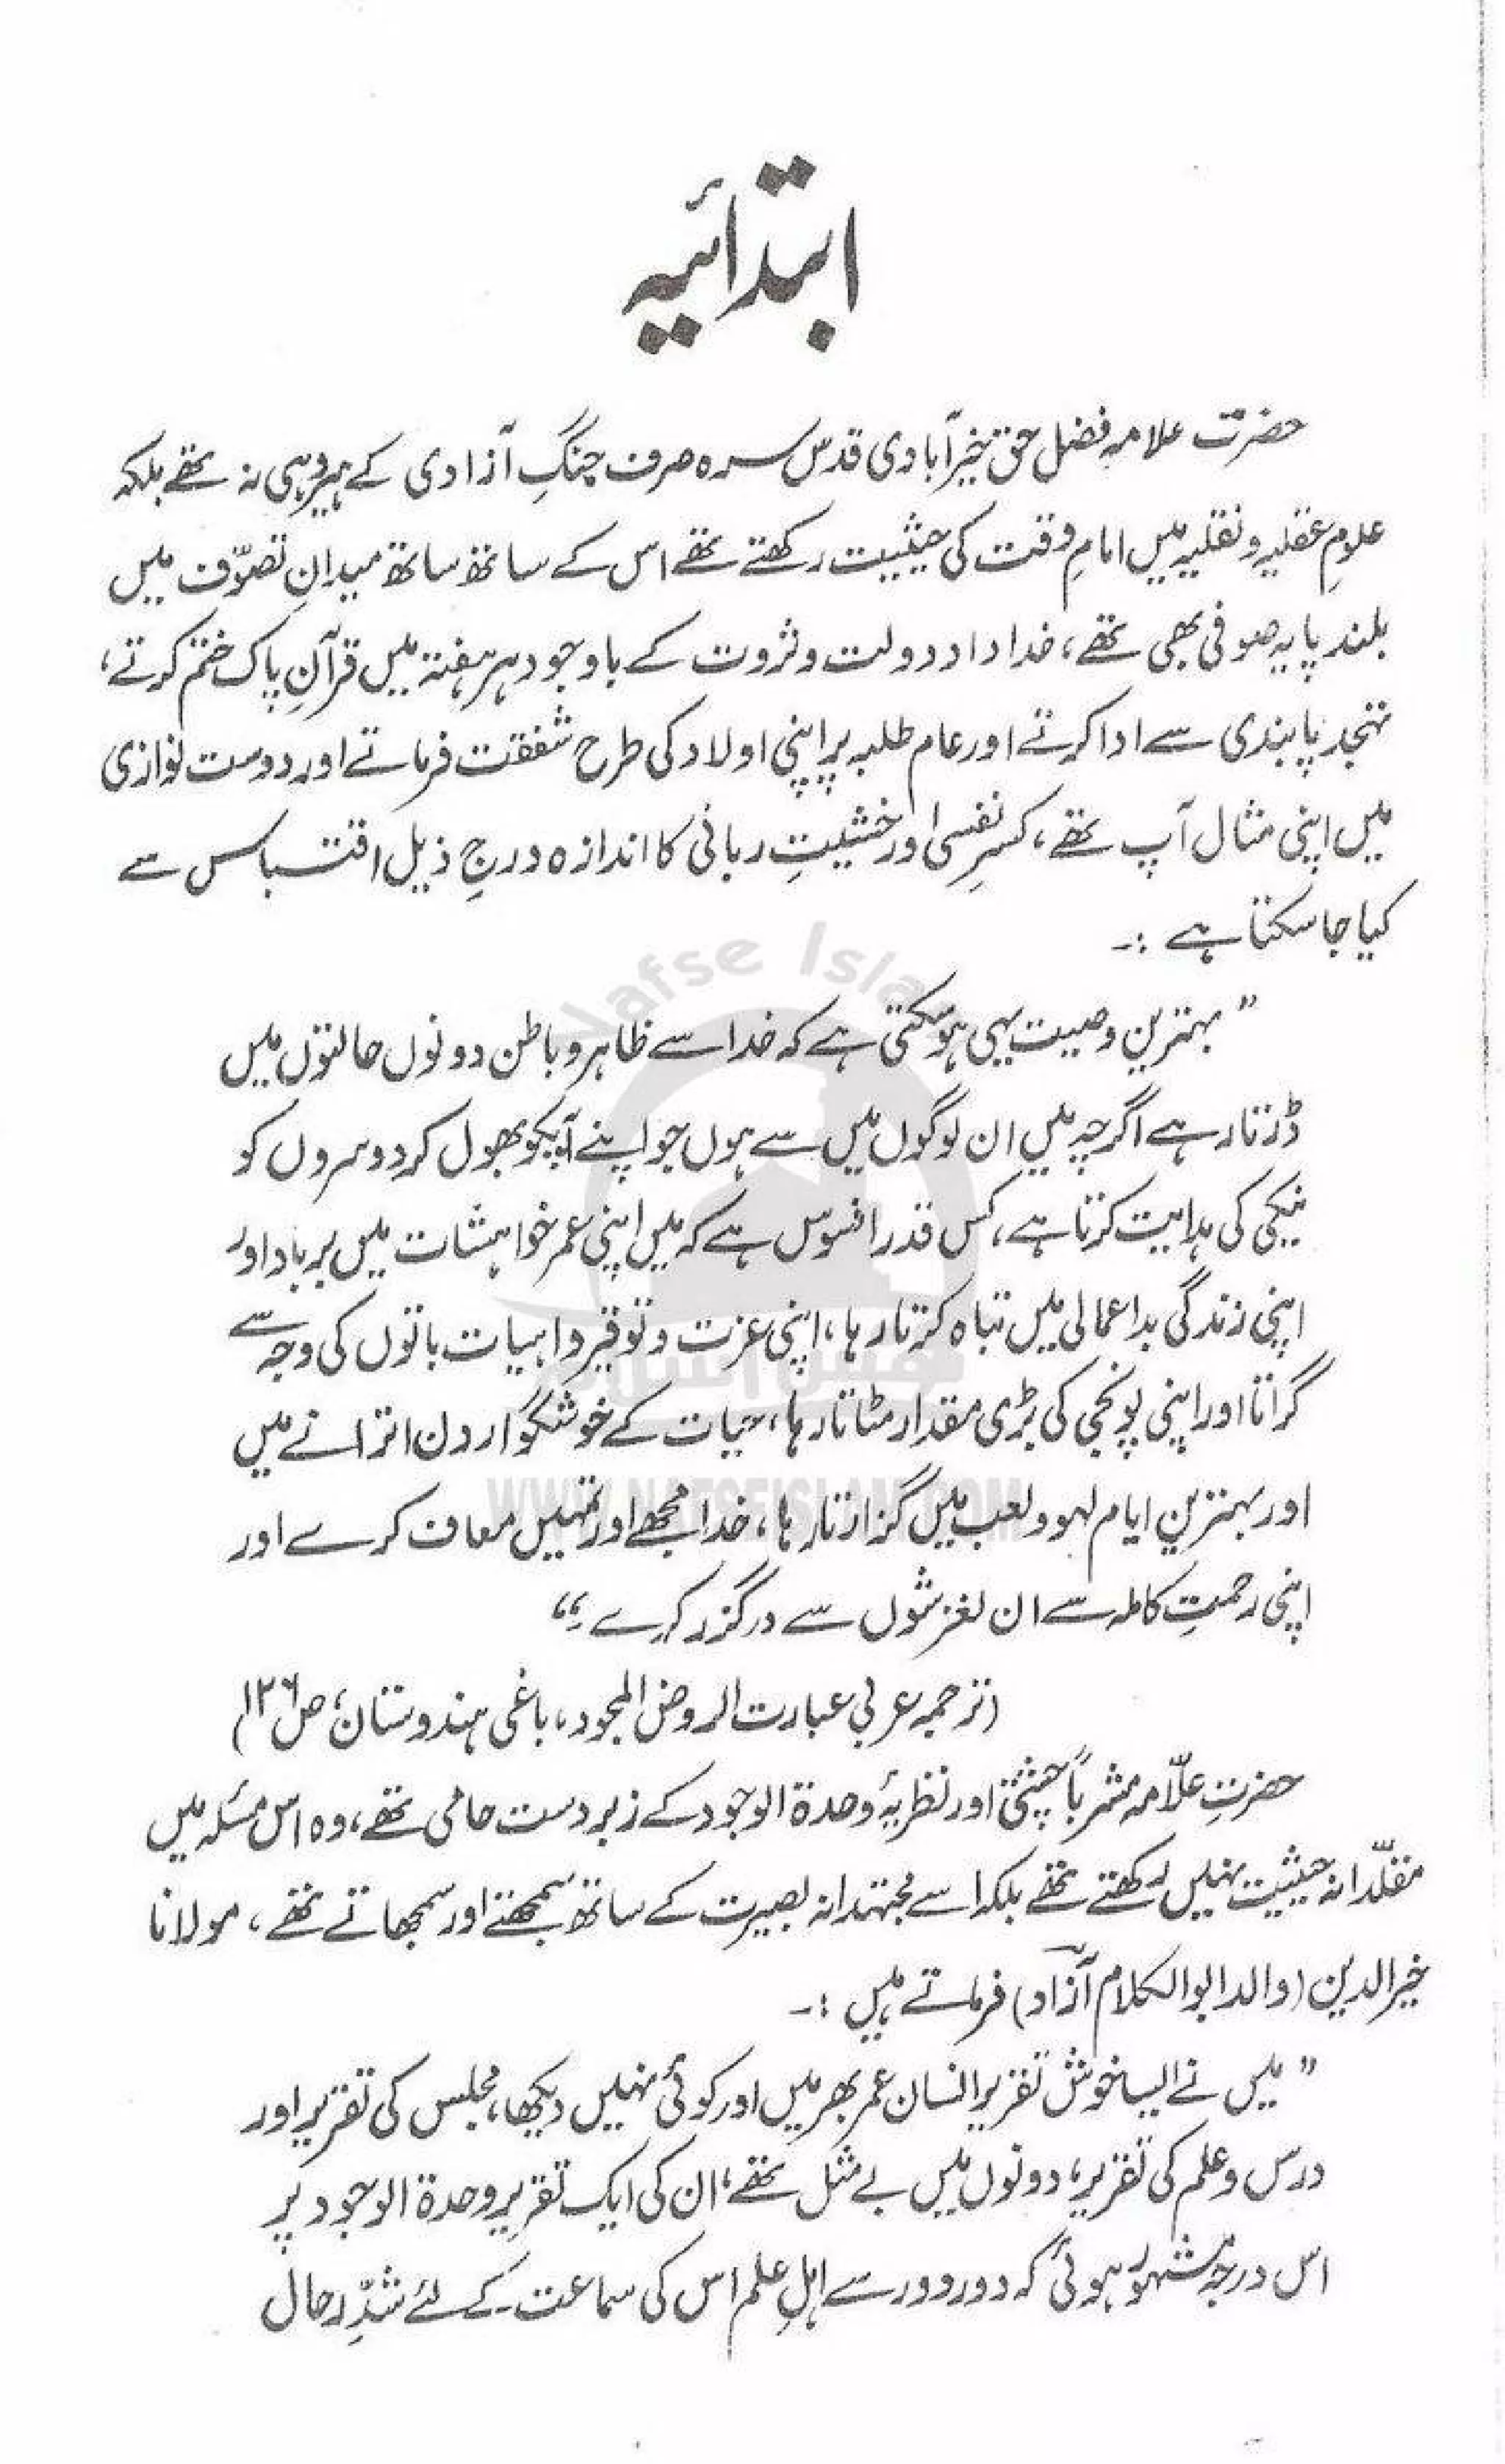 ابتدائیہ
حضرت علامہ فضل حق خیرآبادی قدس سرہ صرف جنگِ آزادی کے ہیرو ہی نہ تھے بلکہ
علومِ عقلیہ و نقلیہ میں امامِ وقت کی حیثیت رکھتے تھے اس کے ساتھ ساتھ میدانِ تصوّف میں
بلند پایہ صوفی بھی تھے، خداداد دولت و ثروت کے باوجود ہر ہفتہ میں قرآنِ پاک ختم کرتے،
تہجد پابندی سے ادا کرتے اور عام طلبہ پر اپنی اولاد کی طرح شفقت فرماتے اور دوست نوازی
میں اپنی مثال آپ تھے، کسرِ نفسی اور خشیتِ ربانی کا اندازہ درجِ ذیل اقتباس سے
کیا جا سکتا ہے :۔
”بہترین وصیت یہی ہو سکتی ہے کہ خدا سے ظاہر و باطن دونوں حالتوں میں
ڈرتا رہے اگرچہ میں ان لوگوں میں سے ہوں جو اپنے آپکو بھول کر دوسروں کو
نیکی کی ہدایت کرتا ہے، کس قدر افسوس ہے کہ میں اپنی عمر خواہشات میں برباد اور
اپنی زندگی بداعمالی میں تباہ کرتا رہا، اپنی عزت و توقیر واہیات باتوں کی وجہ سے
گراتا اور اپنی پونجی کی بڑی مقدار مٹاتا رہا، حیات کے خوشگوار دن اترانے میں
اور بہترین ایام لہو و لعب میں گزارتا رہا، خدا مجھے اور تمہیں معاف کرے اور
اپنی رحمتِ کاملہ سے ان لغزشوں سے درگزر کرے۔“
(ترجمہ عربی عبارت الروض المجود، باغی ہندوستان، ص ۱۲۶)
حضرتِ علّامہ مشرباً چشتی اور نظریۂ وحدۃ الوجود کے زبردست حامی تھے، وہ اس مسئلہ میں
مقلّدانہ حیثیت نہیں رکھتے تھے بلکہ اسے مجتہدانہ بصیرت کے ساتھ سمجھتے اور سمجھاتے تھے، مولانا
خیرالدین (والد ابوالکلام آزاد) فرماتے ہیں :۔
”میں نے ایسا خوش تقریر انسان عمر بھر میں اور کوئی نہیں دیکھا، مجلس کی تقریر اور
درس و علم کی تقریر، دونوں میں بے مثل تھے، ان کی ایک تقریر وحدۃ الوجود پر
اس درجہ مشہور ہوئی کہ دور دور سے اہلِ علم اس کی سماعت کے لئے شدِّ رحال
Nafse Islam
نفس اسلام
WWW.NAFSEISLAM.COM